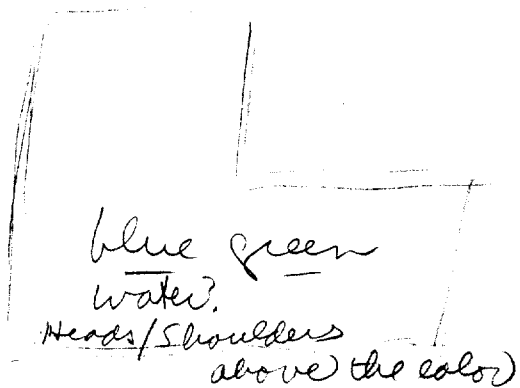 blue green
water?
Heads/Shoulders
above the color